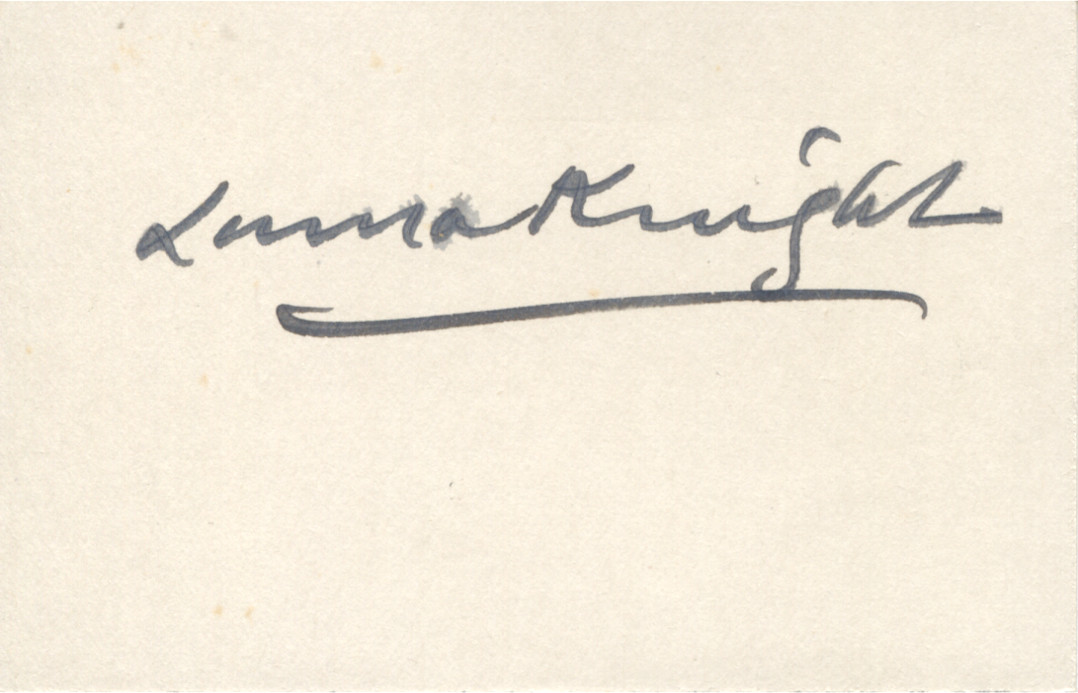 Laura Knight